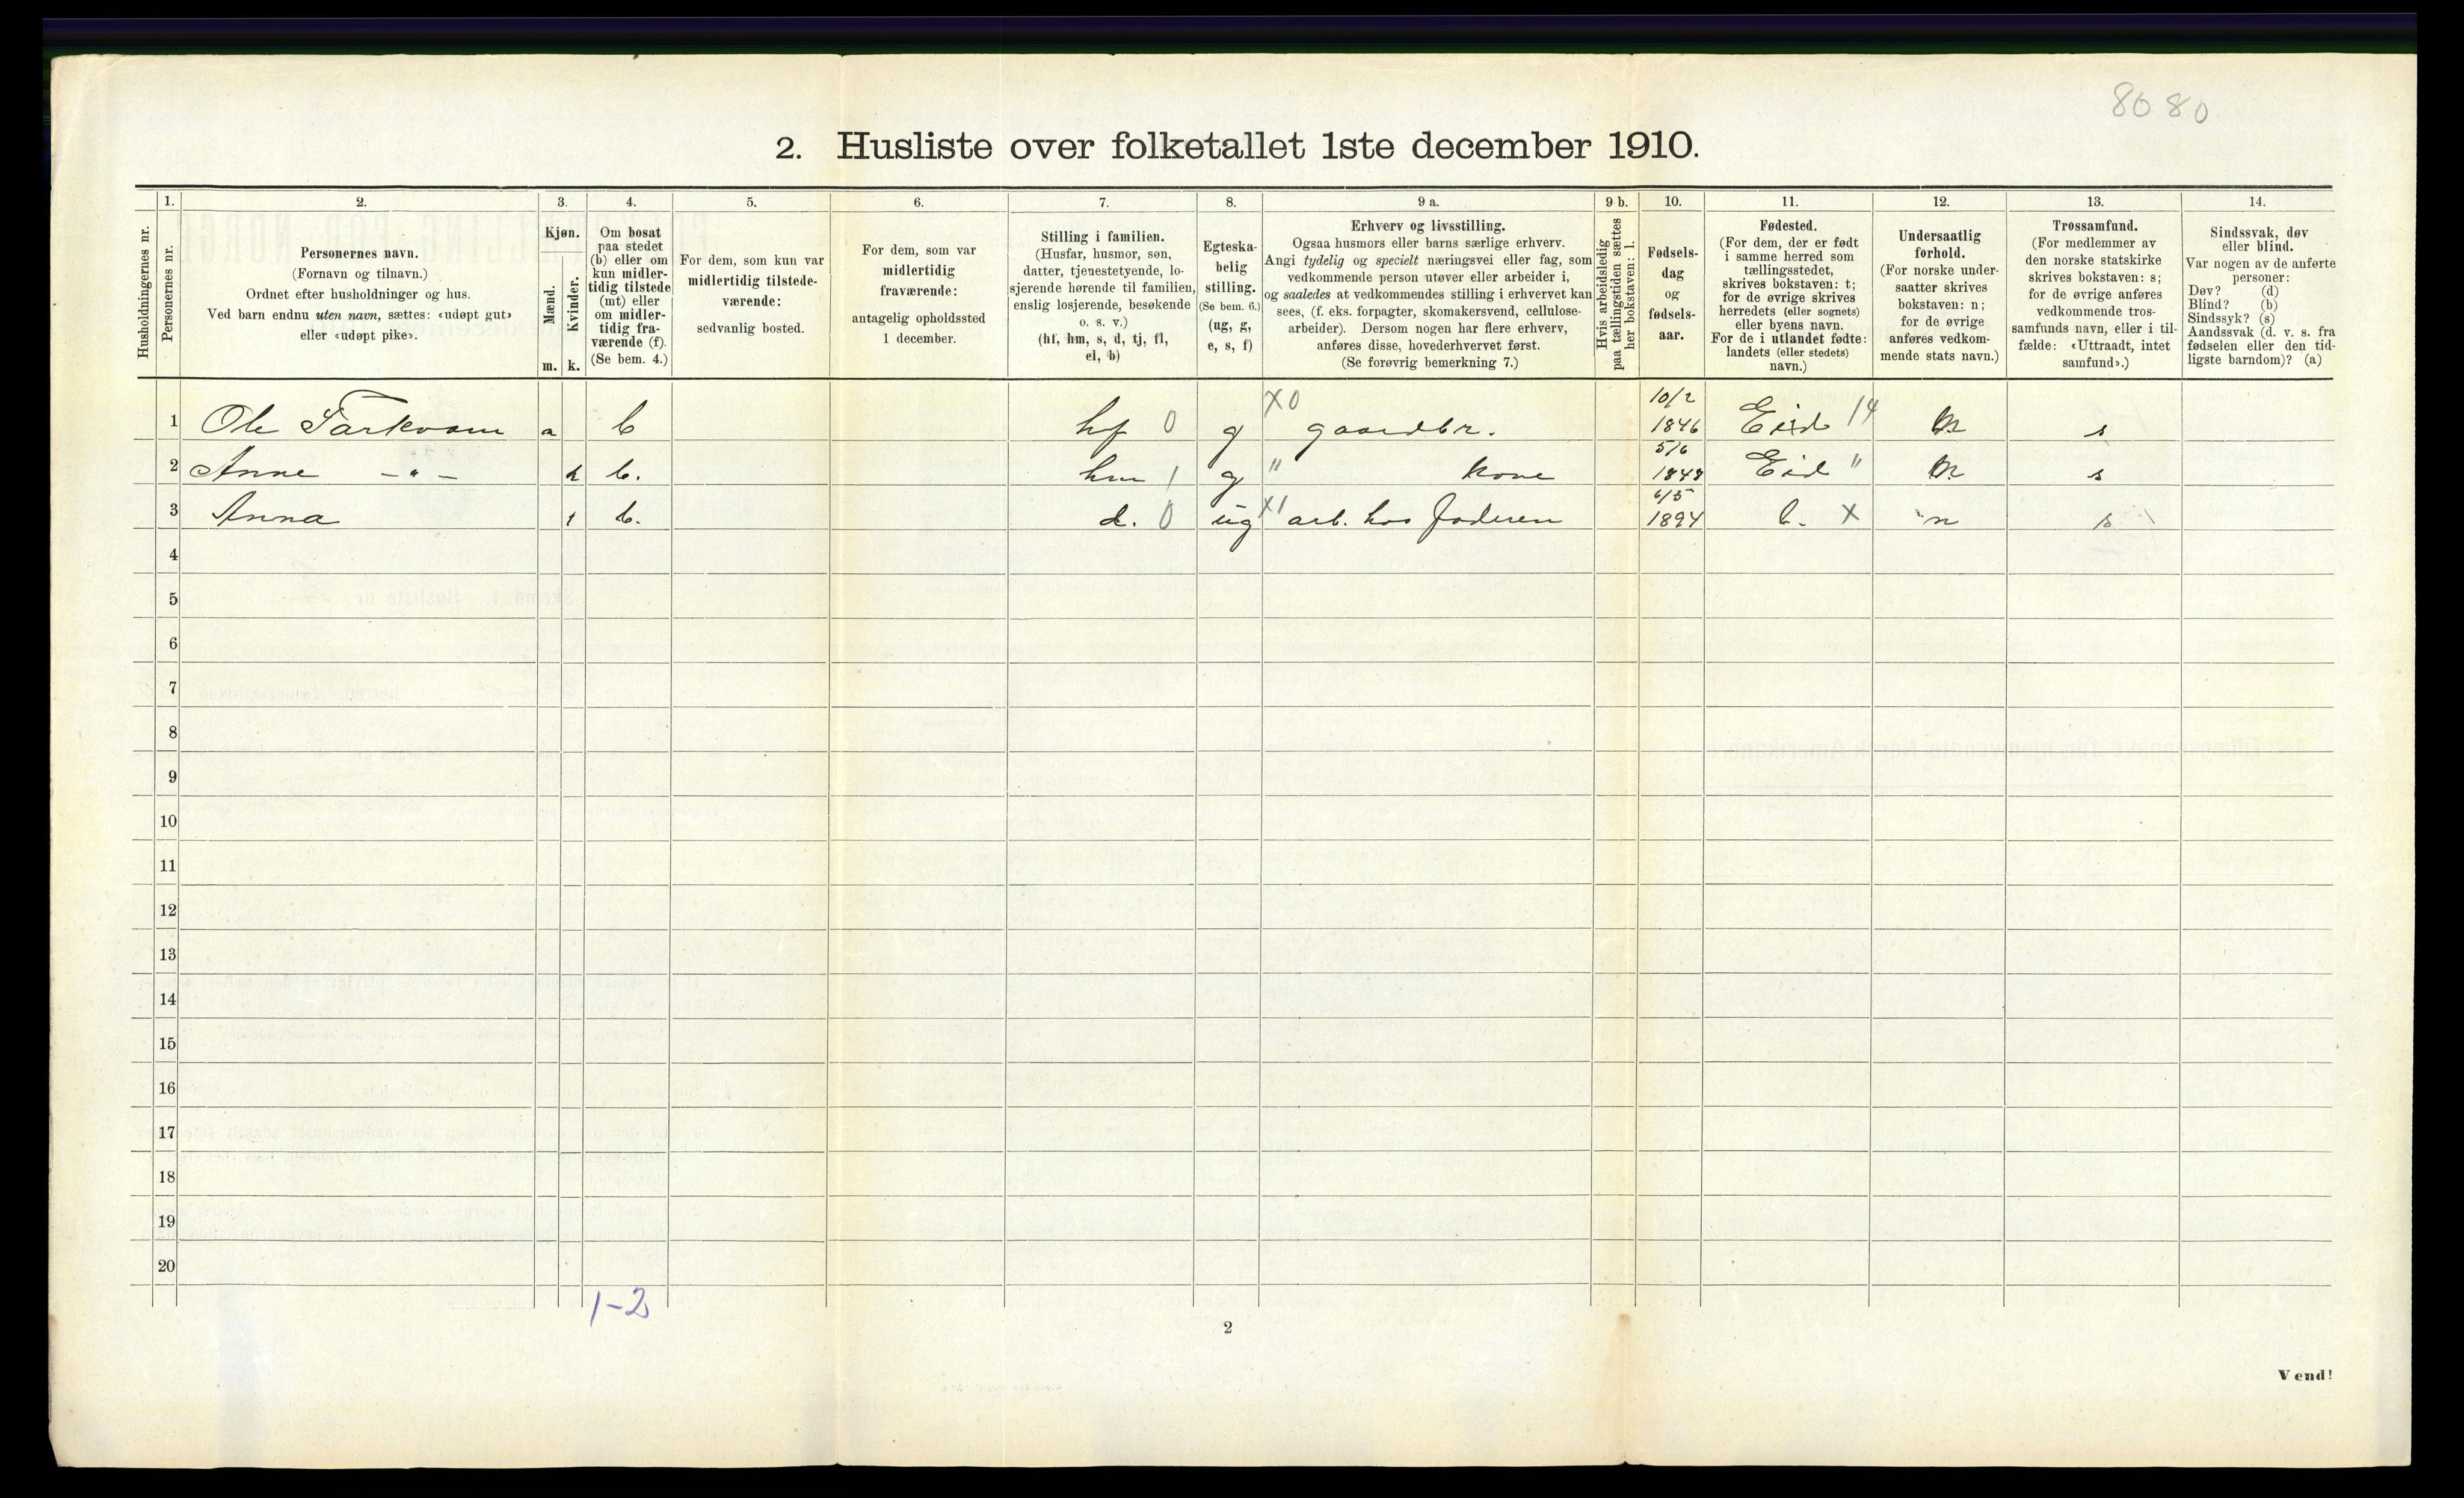 8080
2. Husliste over folketallet 1ste december 1910.
Husholdningernes nr.
1.
Personernes nr.
2.
Personernes navn.
(Fornavn og tilnavn.)
Ordnet efter husholdninger og hus.
Ved barn endnu uten navn, sættes: «udøpt gut»
eller «udøpt pike».
3.
Kjøn.
Mænd.
Kvinder.
m. k.
4.
Om bosat
paa stedet
(b) eller om
kun midler-
tidig tilstede
(mt) eller
om midler-
tidig fra-
værende (f).
(Se bem. 4.)
5.
For dem, som kun var
midlertidig tilstede-
værende:
sedvanlig bosted.
6.
For dem, som var
midlertidig
fraværende:
antagelig opholdssted
1 december.
7.
Stilling i familien.
(Husfar, husmor, søn,
datter, tjenestetyende, lo-
sjerende hørende til familien,
enslig losjerende, besøkende
o. s. v.)
(hf, hm, s, d, tj, fl,
el, b)
8.
Egteska-
belig
stilling.
(Se bem. 6.)
(ug, g,
e, s, f)
9 a.
Erhverv og livsstilling.
Ogsaa husmors eller barns særlige erhverv.
Angi tydelig og specielt næringsvei eller fag, som
vedkommende person utøver eller arbeider i,
og saaledes at vedkommendes stilling i erhvervet kan
sees, (f. eks. forpagter, skomakersvend, cellulose-
arbeider). Dersom nogen har flere erhverv,
anføres disse, hovederhvervet først.
(Se forøvrig bemerkning 7.)
9 b.
Hvis arbeidsledig
paa tællingstiden sættes
her bokstaven: l.
10.
Fødsels-
dag
og
fødsels-
aar.
11.
Fødested.
(For dem, der er født
i samme herred som
tællingsstedet,
skrives bokstaven: t;
for de øvrige skrives
herredets (eller sognets)
eller byens navn.
For de i utlandet fødte:
landets (eller stedets)
navn.)
12.
Undersaatlig
forhold.
(For norske under-
saatter skrives
bokstaven: n;
for de øvrige
anføres vedkom-
mende stats navn.)
13.
Trossamfund.
(For medlemmer av
den norske statskirke
skrives bokstaven: s;
for de øvrige anføres
vedkommende tros-
samfunds navn, eller i til-
fælde: «Uttraadt, intet
samfund».)
14.
Sindssvak, døv
eller blind.
Var nogen av de anførte
personer:
Døv? (d)
Blind? (b)
Sindssyk? (s)
Aandssvak (d. v. s. fra
fødselen eller den tid-
ligste barndom)? (a)
1 Ole b hf 0 g X0 gaardbr. 10/2 1846 Eid 14 n s
2 Anne - " - b. hm 1 g " kone 5/6 Eid " n s
3 Anna 1 b. d. 0 ug X1 arb. hos faderen 6/5 1894 X n s
4
5
6
7
8
9
10
11
12
13
14
15
16
17
18
19
20
1-2
2
Vend!